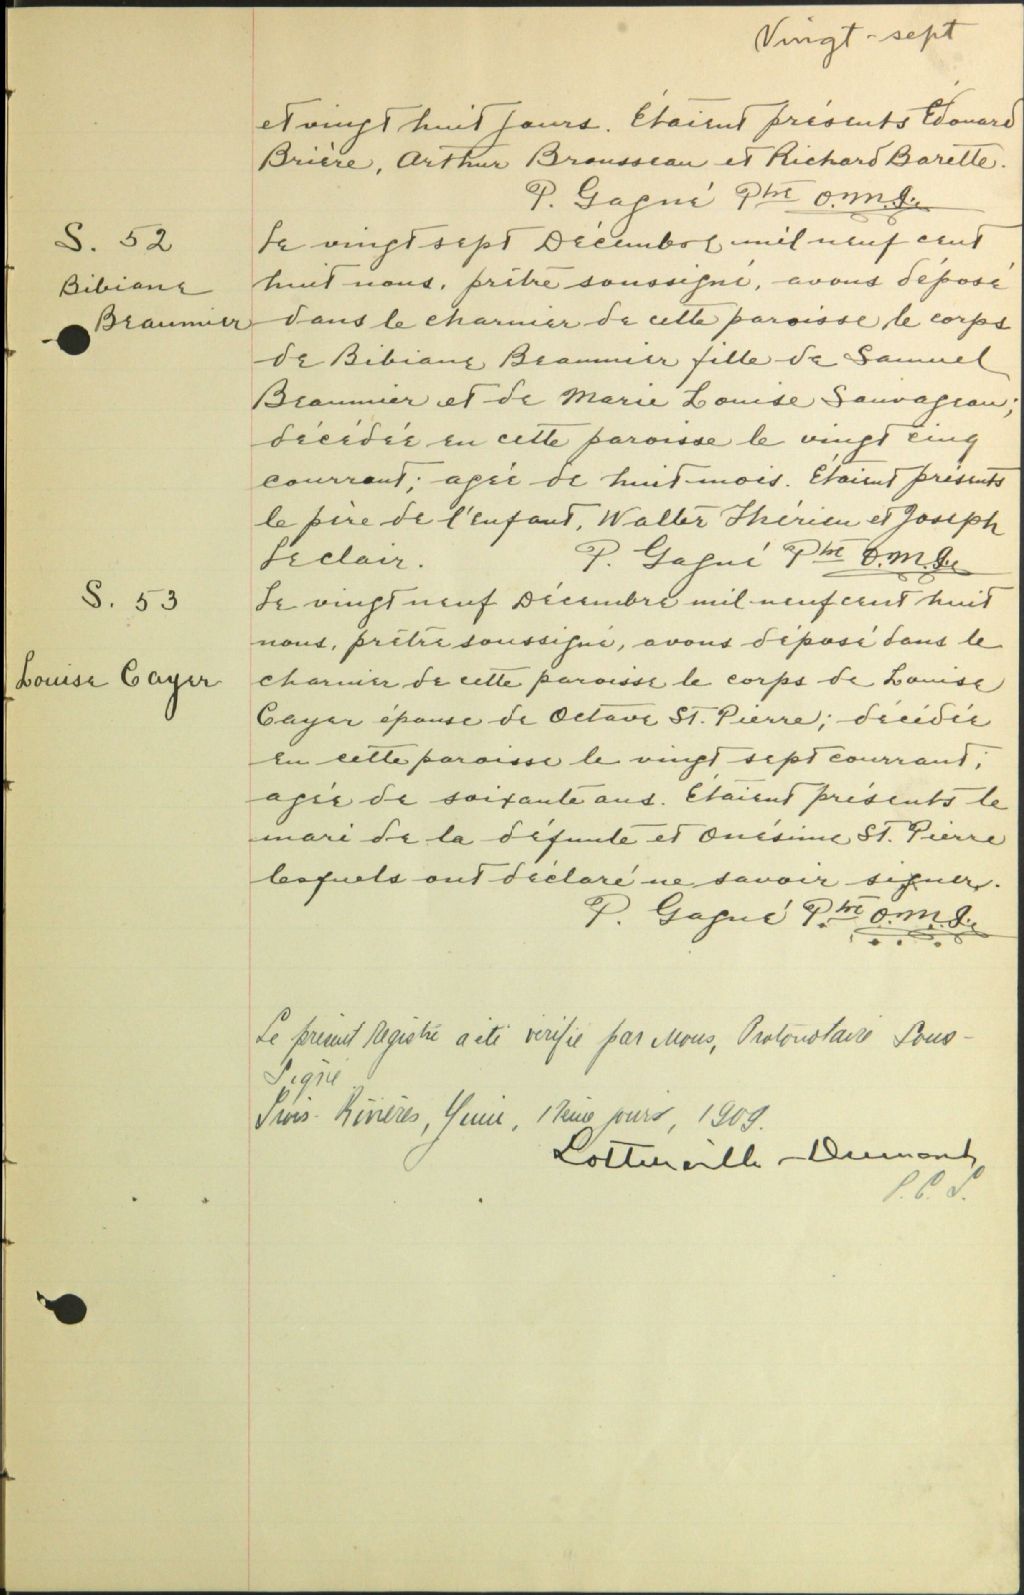 Vingt-sept
et vingt huit jours. Étaient présents Édouard
Brière, Arthur Brousseau et Richard Barette.
P. Gagné Ptre o.m.I.
S. 52
Bibiane
Beaumier
Le vingt sept Décembre mil neuf cent
huit nous, prêtre soussigné, avons déposé
dans le charnier de cette paroisse le corps
de Bibiane Beaumier fille de Samuel
Beaumier et de Marie Louise Sauvageau;
décédée en cette paroisse le vingt cinq
courrant; agée de huit mois. Étaient présents
le père de l'enfant, Walter Thérien et Joseph
Leclair. P. Gagné Ptre O.M.I.
S. 53
Louise Cayer
Le vingt neuf Décembre mil neuf cent huit
nous, prêtre soussigné, avons déposé dans le
charnier de cette paroisse le corps de Louise
Cayer épouse de Octave St. Pierre; décédée
en cette paroisse le vingt sept courrant;
agée de soixante ans. Étaient présents le
mari de la défunte et Onésime St. Pierre
lesquels ont déclaré ne savoir signer.
P. Gagné Ptre O.M.I.
Le présent Registre a été vérifié par Nous, Protonotaire Sous-
Signé
Trois-Rivières, Juin, jours, 1909.
Lottinville Dumont
P. C. S.